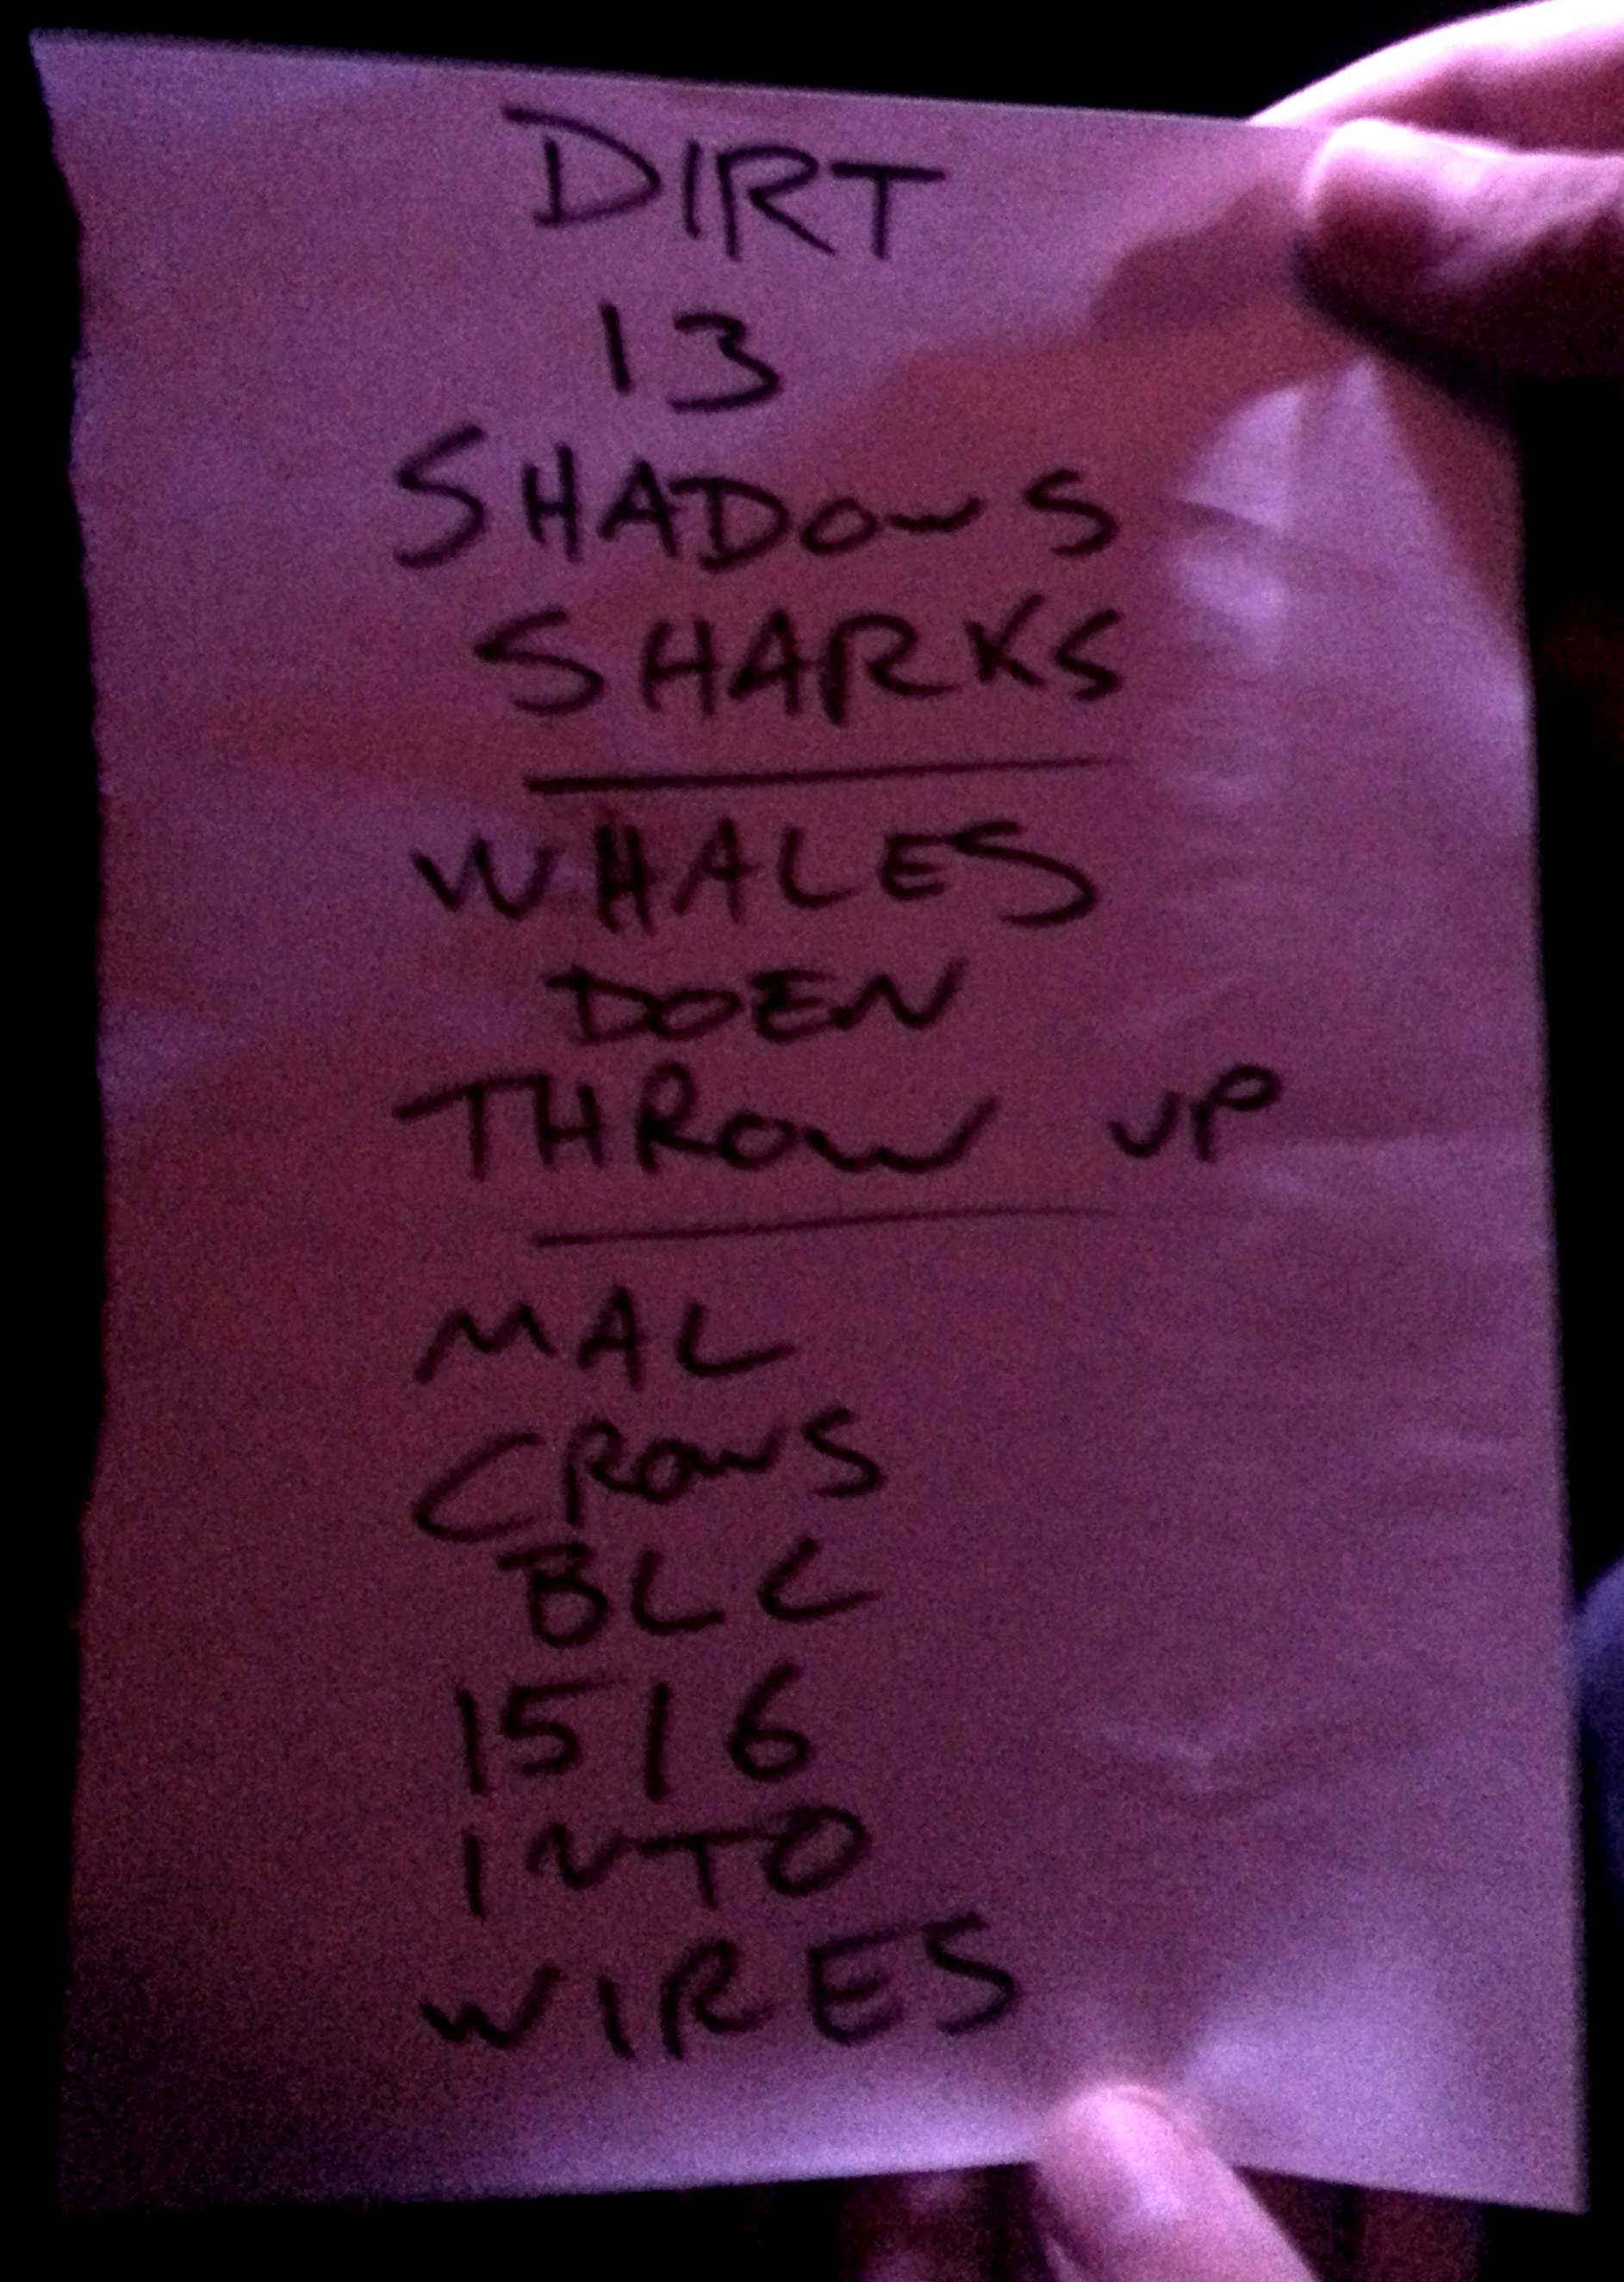 DIRT
13
SHADOWS
SHARKS
WHALES
DOEN
THROW UP
MAL
CROWS
BLC
1516
INTO
WIRES